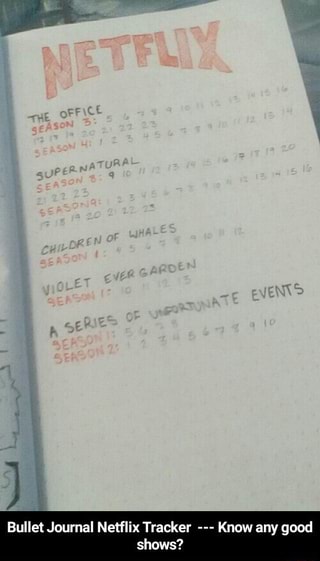 NETFLIX
THE OFFICE
SEASON 3: 5 6 7 8 9 10 11 12 13 14 15 16
17 18 19 20 21 22 23
SEASON 4: 1 2 3 4 5 6 7 8 9 10 11 12 13 14
SUPERNATURAL
SEASON 8: 9 10 11 12 13 14 15 16 17 18 19 20
21 22 23
SEASON 9: 1 2 3 4 5 6 7 8 9 10 11 12 13 14 15 16
17 18 19 20 21 22 23
CHILDREN OF WHALES
SEASON 1: 4 5 6 7 8 9 10 11 12
VIOLET EVERGARDEN
SEASON 1: 10 11 12 13
A SERIES OF UNFORTUNATE EVENTS
SEASON 1: 5 6 7 8
SEASON 2: 1 2 3 4 5 6 7 8 9 10
Bullet Journal Netflix Tracker --- Know any good
shows?